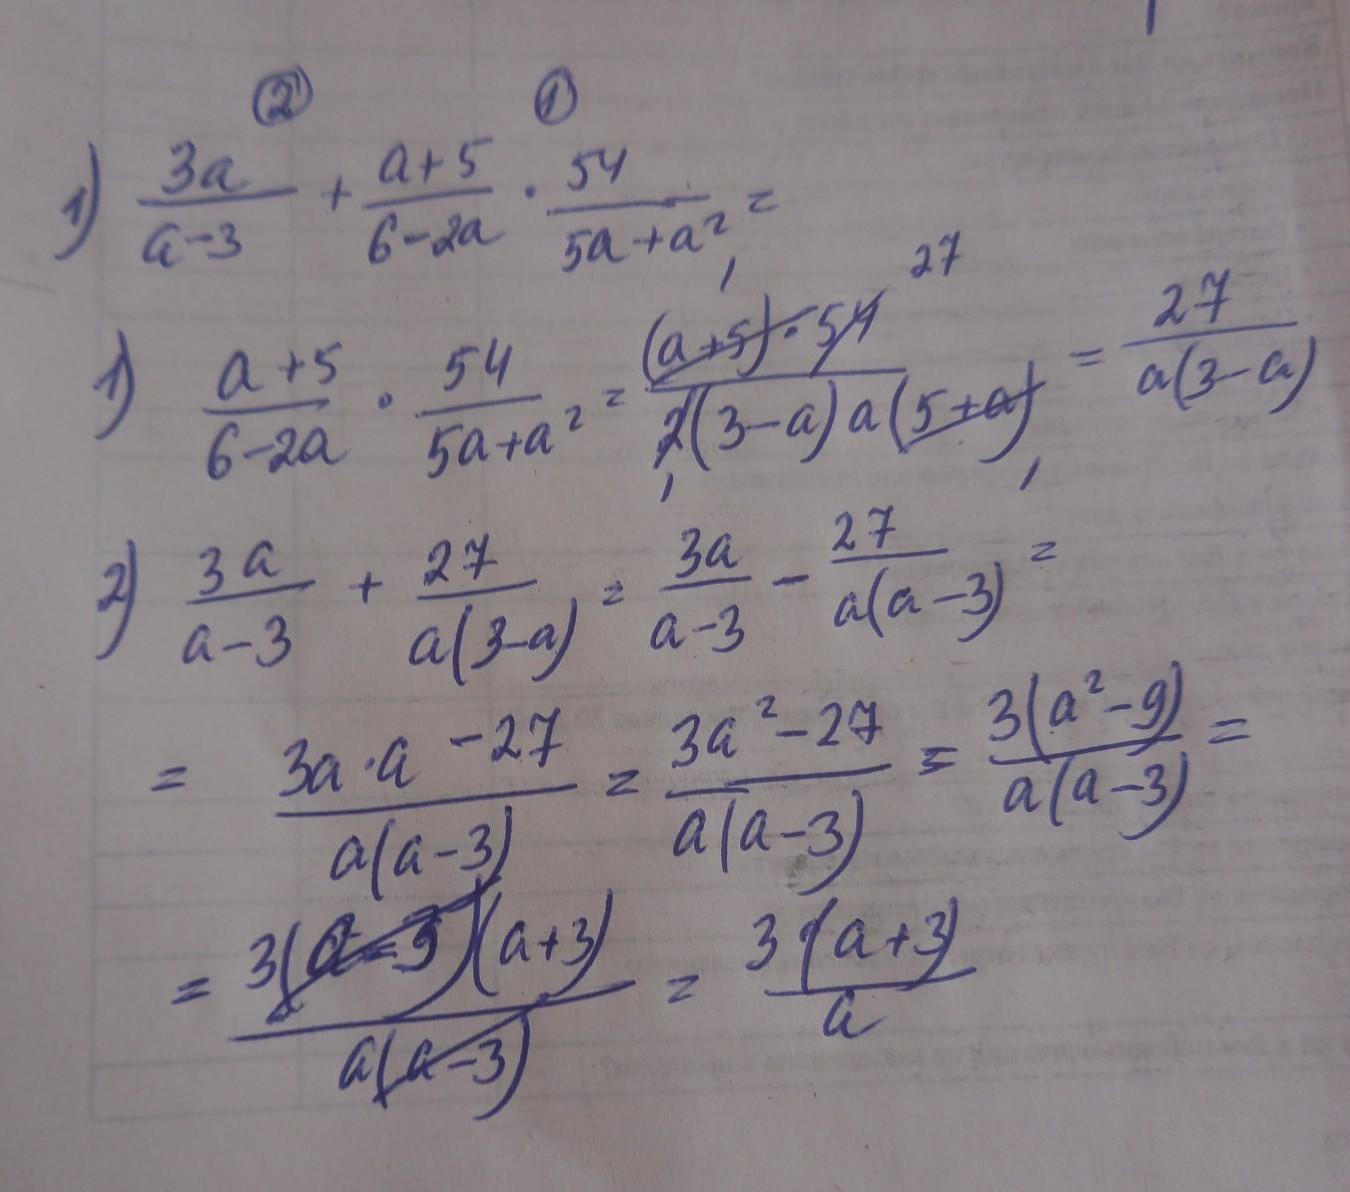 ② ①
1) 3a/(a-3) + (a+5)/(6-2a) · 54/(5a+a²) =
1) (a+5)/(6-2a) · 54/(5a+a²) = ((a+5)·54)/(2(3-a)a(5+a)) = 27/(a(3-a))
1 27
1 1
2) 3a/(a-3) + 27/(a(3-a)) = 3a/(a-3) - 27/(a(a-3)) =
= (3a·a-27)/(a(a-3)) = (3a²-27)/(a(a-3)) = 3(a²-9)/(a(a-3)) =
= 3(a-3)(a+3)/(a(a-3)) = 3(a+3)/a